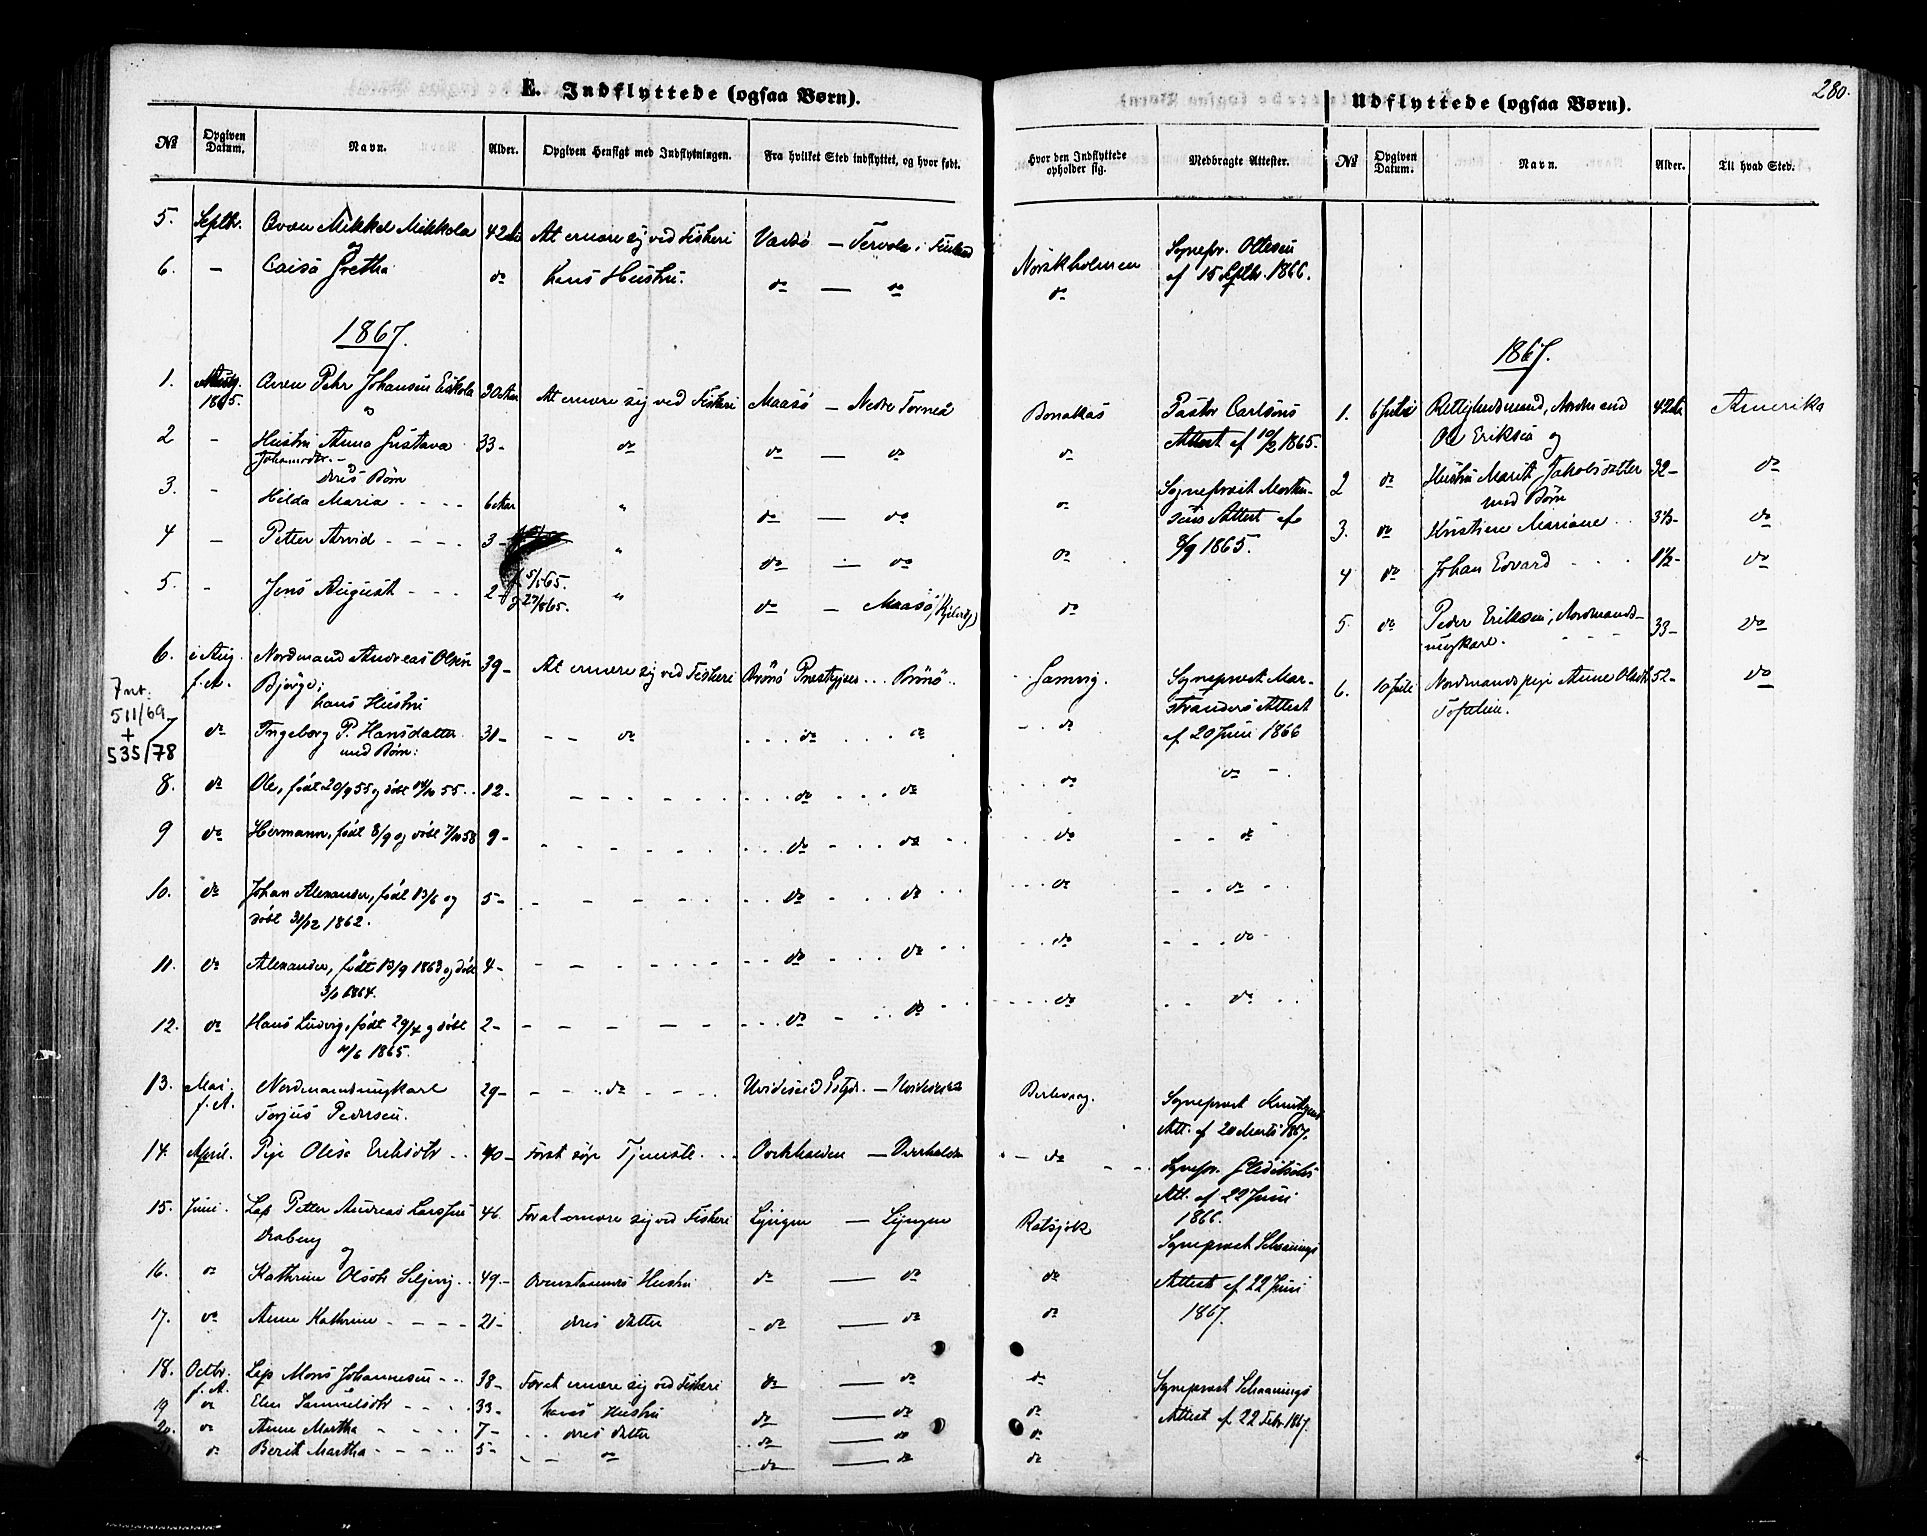 E. Indflyttede (ogsaa Børn).
Udflyttede (ogsaa Børn).
280.
№ Opgiven Datum. Navn. Alder. Opgiven Hensigt med Indflytningen. Fra hvilket Sted indflyttet, og hvor født.
Hvor den Indflyttede opholder sig. Medbragte Attester. № Opgiven Datum. Navn. Alder. Til hvad Sted.
5. Septbr. Qvæn Mikkel Mikkola 42 At ernære sig ved Fiskeri Vardø — Tervola i Finland
og
6. — Caisa Gretha do hans Hustru. do — do
1867.
1. 1865. Qvæn Pehr Johansen Eskola 30 Aar At ernære sig ved Fiskeri Maasø — Nedre Torneå
2 - Hustru Anna Gustava 33- do do — do
Johansdtr. -
deres Børn
3. - Hilda Maria - - - - 6 Aar " do — do
4 — Petter Arvid - - - - 3- " do — do
5. - Jens August - - - 2- f 5/1 65. " do — Maasø,
d 27/8 65.
6. i Aug. Nordmand Andreas Olsen 39- At ernære sig ved Fiskeri Brönö Prestegjeld ... Brönö
f. A. Bjørge;
hans Hustru
7nt:
511/69
+
535/78
7 do Ingeborg P. Hansdatter 31- - - do ... do ... do
med Børn:
8. do Ole, født 20/9 55 og døbt 14/10 55.. 12- do do
9 do Hermann, født 8/9 og døbt 7/10 58 9- do do
10. do Johan Alexander, født 13/6 og 5- do do
døbt 31/12 1862.
11. do Alexander, født 13/9 1863 og døbt 4- do do
3/1 1864.
12. do Hans Ludvig, født 29/4 og døbt 2- do do
4/6 1865.
13. Mai Nordmandsungkarl 29- - - do - - Hvideseid Pstgd. — Hvideseid
f. A. Torjus Pedersen.
14. April. Pige Olise Eriksdtr .. 40- For at søge Tjeneste ..
15. Juni. Lap Petter Andreas Larssen 46. For at ernære sig ved Fiskeri Lyngen — Lyngen
og
16. do Kathrine Olsdtr 49- Ovenstaaendes Hustru do — do
17. do Anne Kathrine - - - - 21- deres Datter - do — do
18. Octbr. Lap Mons Johannesen - - 38- For at ernære sig ved Fiskeri do — do
f. A.
19 do Elen Samuelsdtr - - - 33- hans Hustru do — do
20. do Anne Martha - - - - 7- .. deres Datter do — do
do Berit Martha - - - - 5- - - do do — do
Norskholmen Sognepr. Ottesen
do af 15 Septbr. 1866.
1867.
Bonakas Pastor Carlsens 1. 6 Juli Rettighedsmand, Nordmand 42 Amerika
do Attest af 10/2 1865. Ole Eriksen og
do Sogneprest Morten- 2 do Hustru Marit Jakobsdatter 32- do
sens Attest af med Børn
do 8/9 1865. 3. do Kristine Mariane .. 3½- do
4 do Johan Edvard - - . 1½- do
do 5 do Peder Eriksen, Nordmands- 33- do
ungkarl. - - -
Gamvig. Sogneprest Mar- 6. 10 Juli Nordmandspige Anne Olsdtr 52- do
stranders Attest
- . do af 20 Juni 1866
do do -
do - - do
do - - do -
do do
do do
Berlevaag. Sogneprest
Att. af 20 Marts 1867.
do Sognepr.
Att. af 22 Juni
1866.
Sogneprest Schaanings
do Attest af 22 Juni
do 1867.
do Sogneprest Schaanings
do Attest af 22 Febr 1867.
do
do